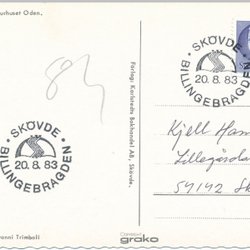 urhuset Oden.
SKÖVDE
20. 8. 83
BILLINGEBRAGDEN
83
Förlag: Karlstedts Bokhandel AB, Skövde.
SKÖVDE
20. 8. 83
BILLINGEBRAGDEN
Kjell Han
Lillegårds
54142 Sk
anni Trimboli
grako